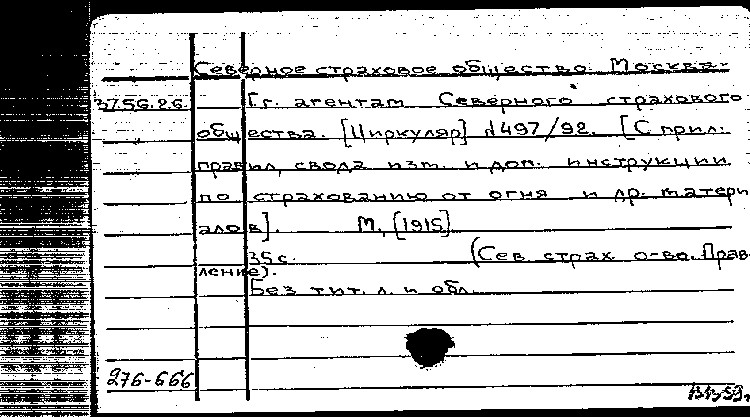 Северное страховое общество. Москва.
37.56.26. Гг. агентам Северного страхового
общества. [Циркуляр] №497/92. [С прил:
правил, свода изм. и доп. инструкции
по страхованию от огня и др. матери
алов]. М, [1915]
35 с. (Сев. страх. о-во. Прав
ление).
Без тит. л. и обл.
276-666